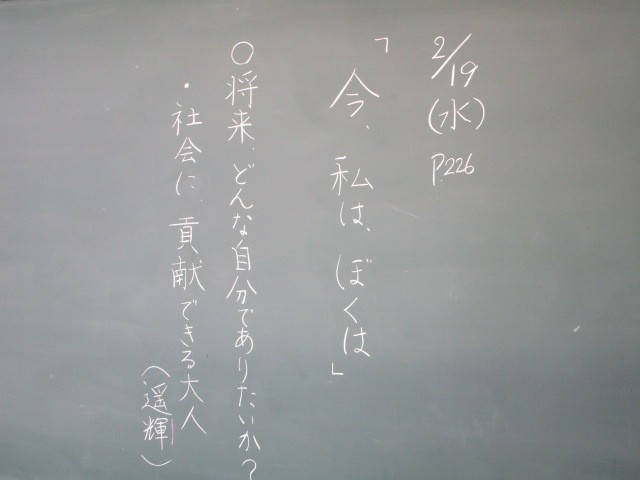 2/19
(水)
P.226
「今、私は、ぼくは」
○将来、どんな自分でありたいか?
・社会に貢献できる大人
(遥輝)